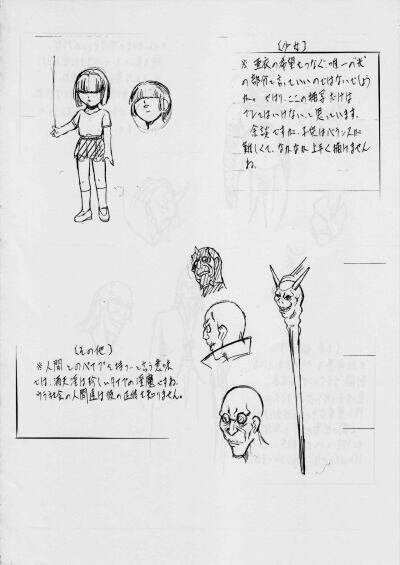 (少女)
※ 亜衣の希望をつなぐ、唯一の光
の部分と言っていいのではないでしょう
か。やはり、ここの描写だけは
ブレてはいけないと思っています。
余談ですが、子供はバランスが
難しくて、なかなか上手く描けません
ね。
(その他)
※ 人間とのパイプを持つ…という意味
では、珍しいタイプの淫魔ですね。
ウラ社会の人間達は彼の正体を知りません。